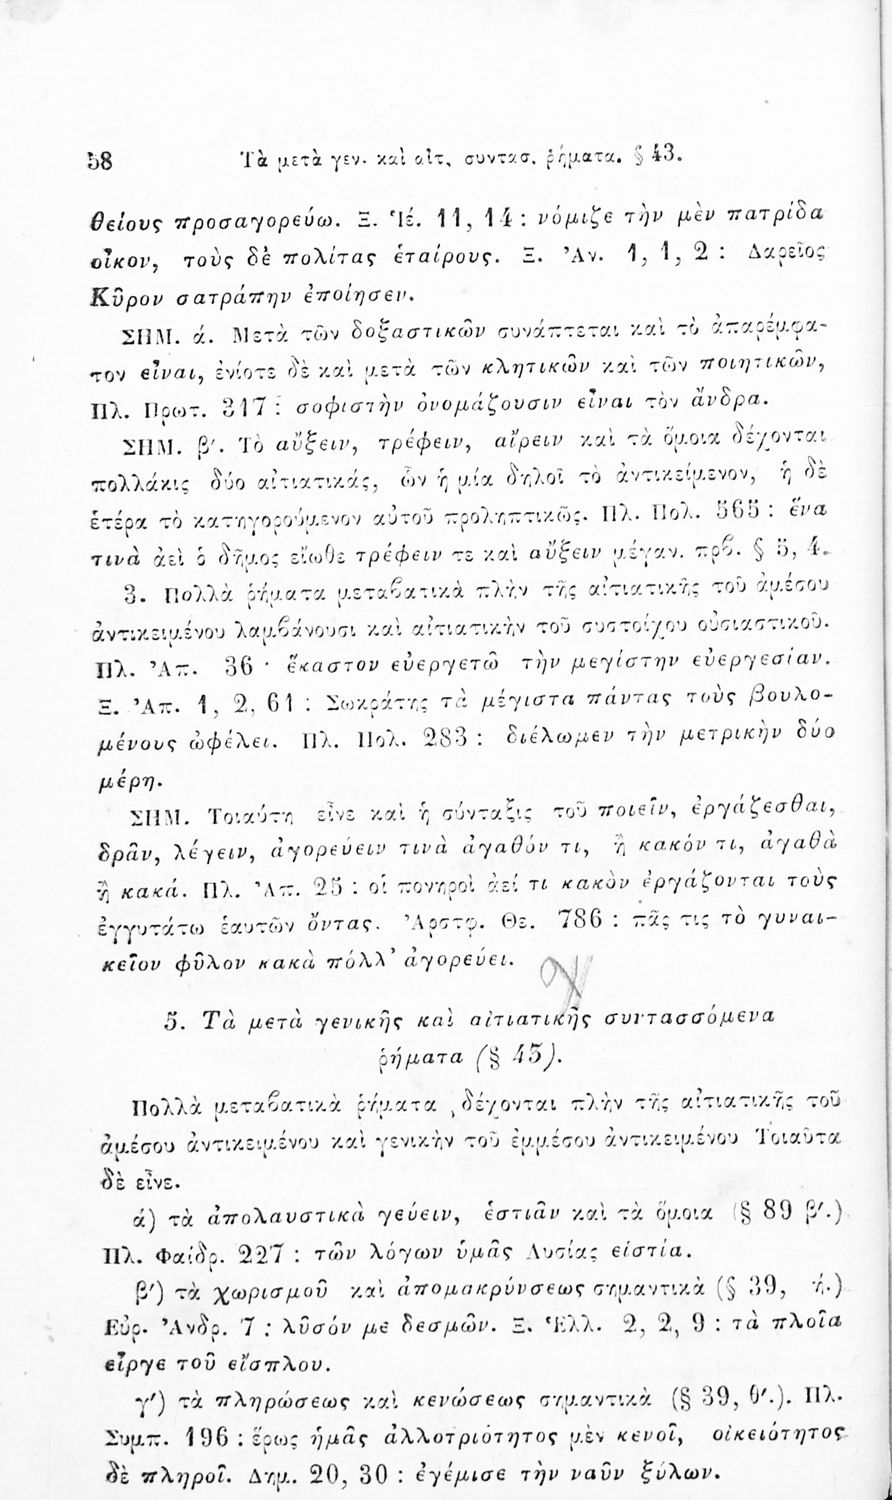 58 Τὰ μετὰ γεν. καὶ αἰτ. συντασ. ῥήματα. § 43.
θείους προσαγορεύω. Ξ. Ἱέ. 11, 14 : νόμιζε τὴν μὲν πατρίδα
οἶκον, τοὺς δὲ πολίτας ἑταίρους. Ξ. Ἀν. 1, 1, 2 : Δαρεῖος
Κῦρον σατράπην ἐποίησεν.
ΣΗΜ. ά. Μετὰ τῶν δοξαστικῶν συνάπτεται καὶ τὸ ἀπαρέμφα-
τον εἶναι, ἐνίοτε δὲ καὶ μετὰ τῶν κλητικῶν καὶ τῶν ποιητικῶν,
Πλ. Πρωτ. 317 : σοφιστὴν ὀνομάζουσιν εἶναι τὸν ἄνδρα.
ΣΗΜ. β′. Τὸ αὔξειν, τρέφειν, αἴρειν καὶ τὰ ὅμοια δέχονται
πολλάκις δύο αἰτιατικάς, ὧν ἡ μία δηλοῖ τὸ ἀντικείμενον, ἡ δὲ
ἑτέρα τὸ κατηγορούμενον αὐτοῦ προληπτικῶς. Πλ. Πολ. 565 : ἕνα
τινὰ ἀεὶ ὁ δῆμος εἴωθε τρέφειν τε καὶ αὔξειν μέγαν. πρβ. § 5, 4.
3. Πολλὰ ῥήματα μεταβατικὰ πλὴν τῆς αἰτιατικῆς τοῦ ἀμέσου
ἀντικειμένου λαμβάνουσι καὶ αἰτιατικὴν τοῦ συστοίχου οὐσιαστικοῦ.
Πλ. Ἀπ. 36 · ἕκαστον εὐεργετῶ τὴν μεγίστην εὐεργεσίαν.
Ξ. Ἀπ. 1, 2, 61 : Σωκράτης τὰ μέγιστα πάντας τοὺς βουλο-
μένους ὠφέλει. Πλ. Πολ. 283 : διέλωμεν τὴν μετρικὴν δύο
μέρη.
ΣΗΜ. Τοιαύτη εἶνε καὶ ἡ σύνταξις τοῦ ποιεῖν, ἐργάζεσθαι,
δρᾶν, λέγειν, ἀγορεύειν τινὰ ἀγαθόν τι, ἢ κακόν τι, ἀγαθὰ
ἢ κακά. Πλ. Ἀπ. 25 : οἱ πονηροὶ ἀεί τι κακὸν ἐργάζονται τοὺς
ἐγγυτάτω ἑαυτῶν ὄντας. Ἀρστφ. Θε. 786 : πᾶς τις τὸ γυναι-
κεῖον φῦλον κακὰ πόλλ' ἀγορεύει.
5. Τὰ μετὰ γενικῆς καὶ αἰτιατικῆς συντασσόμενα
ῥήματα (§ 45).
Πολλὰ μεταβατικὰ ῥήματα δέχονται πλὴν τῆς αἰτιατικῆς τοῦ
ἀμέσου ἀντικειμένου καὶ γενικὴν τοῦ ἐμμέσου ἀντικειμένου Τοιαῦτα
δὲ εἶνε.
ά) τὰ ἀπολαυστικὰ γεύειν, ἑστιᾶν καὶ τὰ ὅμοια (§ 89 β′.)
Πλ. Φαίδρ. 227 : τῶν λόγων ὑμᾶς Λυσίας εἱστία.
β′) τὰ χωρισμοῦ καὶ ἀπομακρύνσεως σημαντικὰ (§ 39, ή.)
Εὐρ. Ἀνδρ. 7 : λῦσόν με δεσμῶν. Ξ. Ἑλλ. 2, 2, 9 : τὰ πλοῖα
εἶργε τοῦ εἴσπλου.
γ′) τὰ πληρώσεως καὶ κενώσεως σημαντικὰ (§ 39, θ′.). Πλ.
Συμπ. 196 : ἔρως ἡμᾶς ἀλλοτριότητος μὲν κενοῖ, οἰκειότητος
δὲ πληροῖ. Δημ. 20, 30 : ἐγέμισε τὴν ναῦν ξύλων.